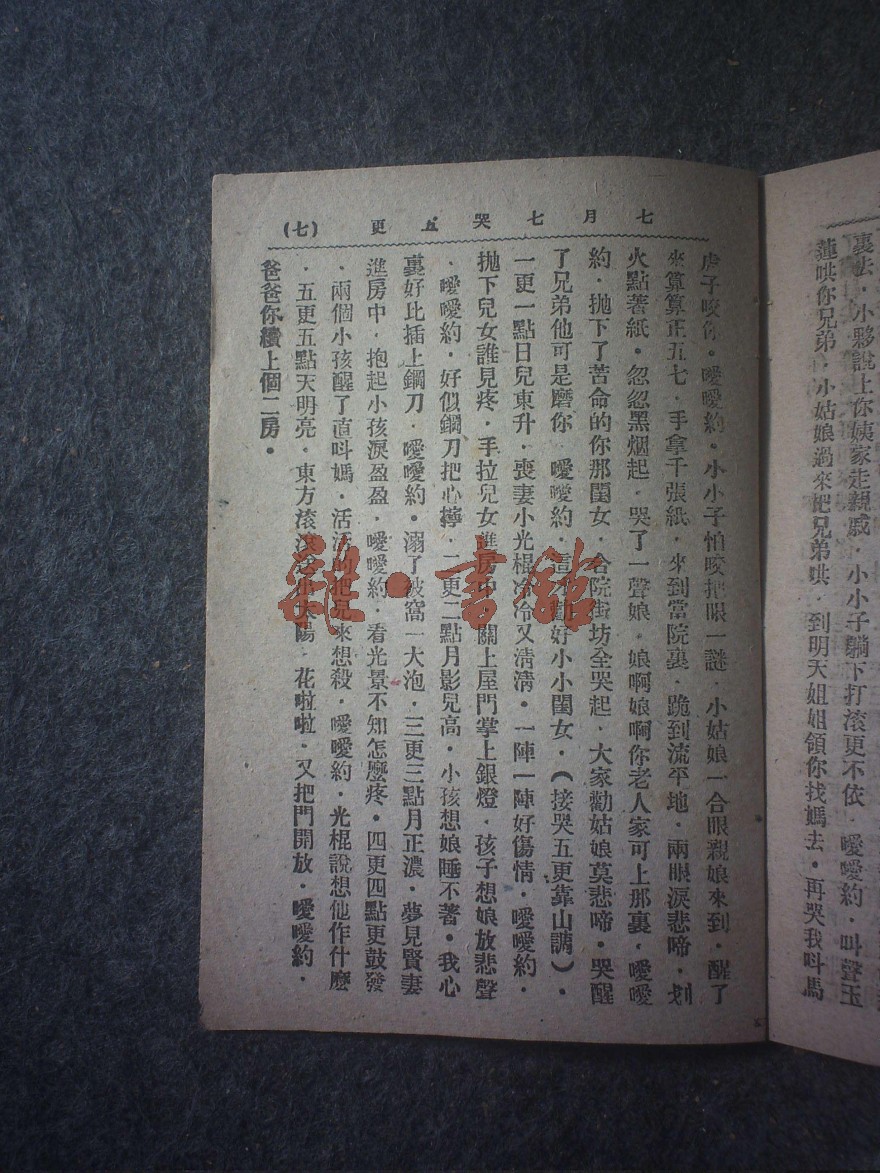 裏去．小夥說上你姨家走親戚．小小子躺下打滾更不依．噯噯約．叫聲玉
蓮哄你兄弟．小姑娘過來把兄弟哄．到明天姐姐領你找媽去．再哭我叫馬
七月七哭五更 (七)
虎子咬你．噯噯約．小小子怕咬把眼一謎．小姑娘一合眼親娘來到．醒了
來算算正五七．手拿千張紙．來到當院裏．跪到流平地．兩眼淚悲啼．划
火點著紙．忽忽黑烟起．哭了一聲娘．娘啊娘啊你老人家可上那裏．噯噯
約．拋下了苦命的你那閨女．合院街坊全哭起．大家勸姑娘莫悲啼．哭醒
了兄弟他可是磨你．噯噯約．這才勸好小小閨女．(接哭五更靠山調)．
一更一點日兒東升．喪妻小光棍冷冷又清清．一陣一陣好傷情．噯噯約．
拋下兒女誰見疼．手拉兒女進房中．關上屋門掌上銀燈．孩子想娘放悲聲
．噯噯約．好似鋼刀把心擰．二更二點月影兒高．小孩想娘睡不著．我心
裏好比插上鋼刀．噯噯約．溺了被窩一大泡．三更三點月正濃．夢見賢妻
進房中．抱起小孩淚盈盈．噯噯約．看光景不知怎麼疼．四更四點更鼓發
．兩個小孩醒了直叫媽．活活的把兒來想殺．噯噯約．光棍說想他作什麼
．五更五點天明亮．東方滾滾太陽．花啦啦．又把門開放．噯噯約．
爸爸你續上個二房．
雜·書館